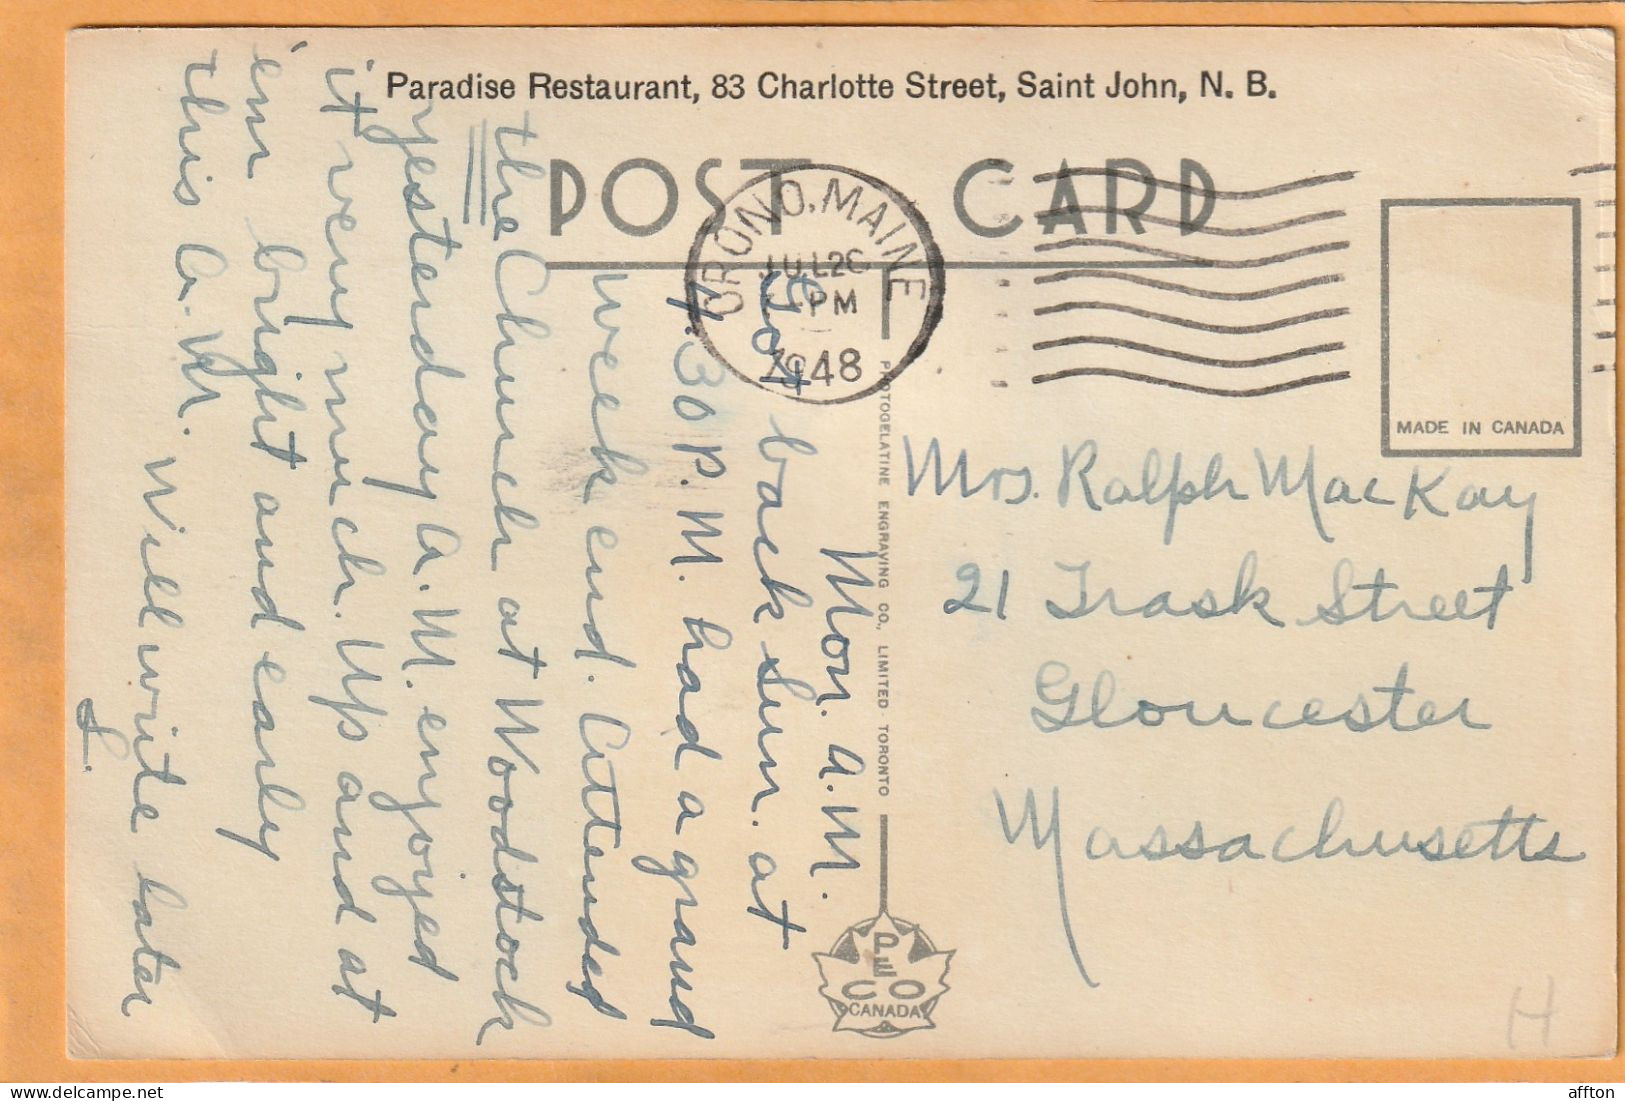 Paradise Restaurant, 83 Charlotte Street, Saint John, N. B.
POST CARD
ORONO, MAINE
JUL 26
PM
1948
MADE IN CANADA
Mon. A.M.
Got back Sun. at
4.30 P.M. had a grand
week end. Attended
the Church at Woodstock
yesterday A.M. enjoyed
it very much. Up and at
'em bright and early
this A.M.
Will write later
L.
Mrs. Ralph MacKay
21 Trask Street
Gloucester
Massachusetts
PHOTOGELATINE ENGRAVING CO., LIMITED. TORONTO
PECO
CANADA
H
affton